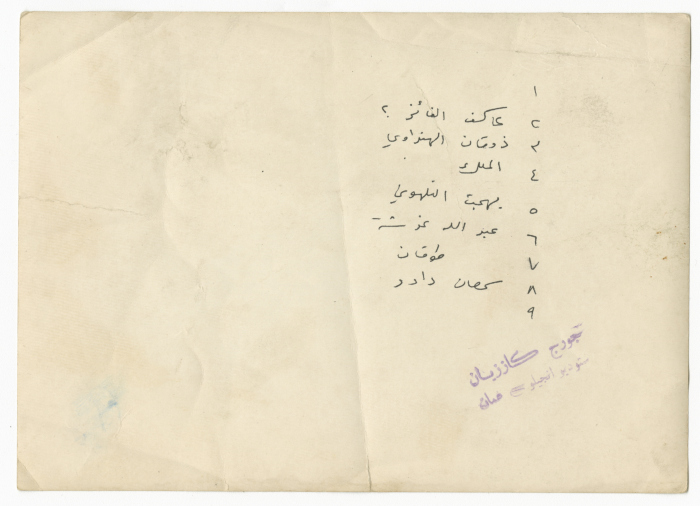 ١
٢ عاكف الفائز ؟
٣ ذوقان الهنداوي
٤ الملك
٥ بهجت التلهوني
٦ عبد الله غوشة
٧ طوقان
٨ سمعان داود
٩
جورج كاززيان
ستوديو انجيلو عمان